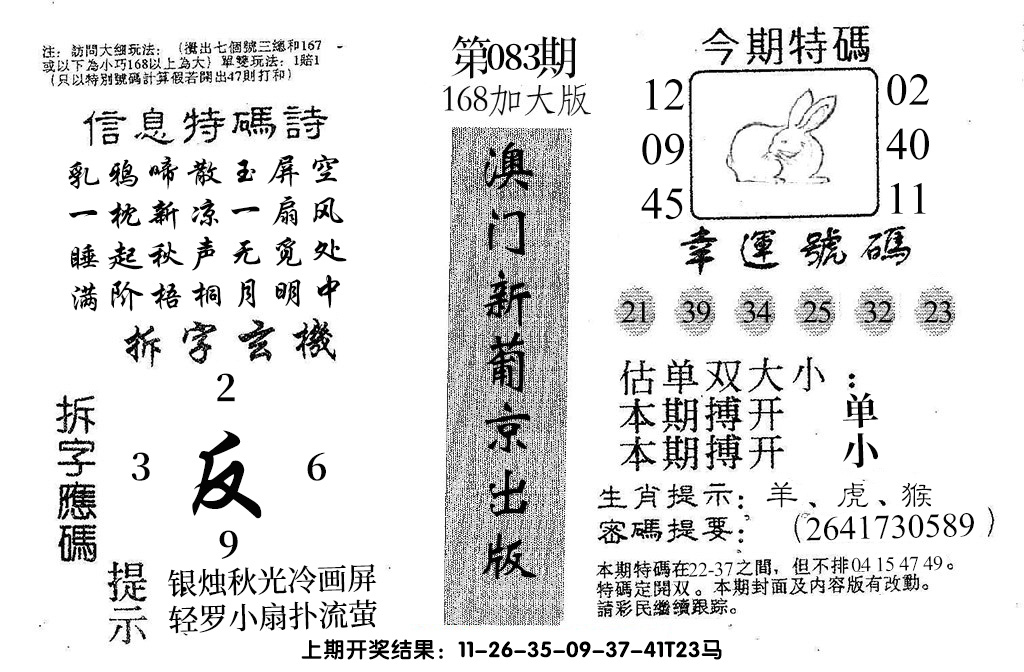 注：訪問大细玩法：（攪出七個號三總和167
或以下為小巧168以上為大）單雙玩法：1賠1
（只以特別號碼計算假若開出47則打和）
信息特碼詩
乳鸦啼散玉屏空
一枕新凉一扇风
睡起秋声无觅处
满阶梧桐月明中
拆字玄機
拆字應碼
2
3 反 6
9
提示
银烛秋光冷画屏
轻罗小扇扑流萤
第083期
168加大版
澳门新葡京出版
今期特碼
12 02
09 40
45 11
幸運號碼
21 39 34 25 32 23
估单双大小：
本期搏开 单
本期搏开 小
生肖提示：羊、虎、猴
密碼提要：（2641730589）
本期特碼在22-37之間，但不排04 15 47 49。
特碼定開双。本期封面及内容版有改動。
請彩民繼續跟踪。
上期开奖结果：11-26-35-09-37-41T23马